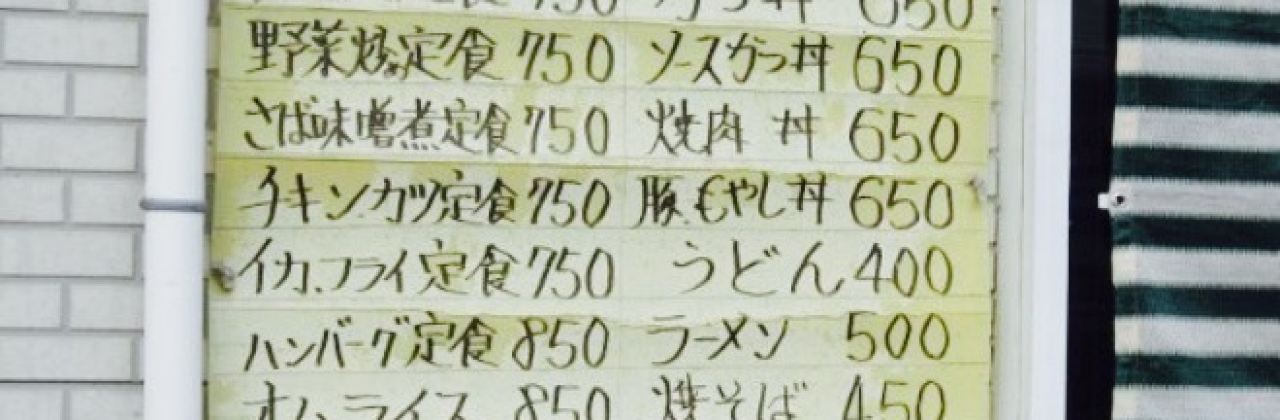 750 丼 650
野菜炒め定食 750 ソースかつ丼 650
さば味噌煮定食 750 焼肉丼 650
チキンカツ定食 750 豚もやし丼 650
イカフライ定食 750 うどん 400
ハンバーグ定食 850 ラーメン 500
オムライス 850 焼そば 450